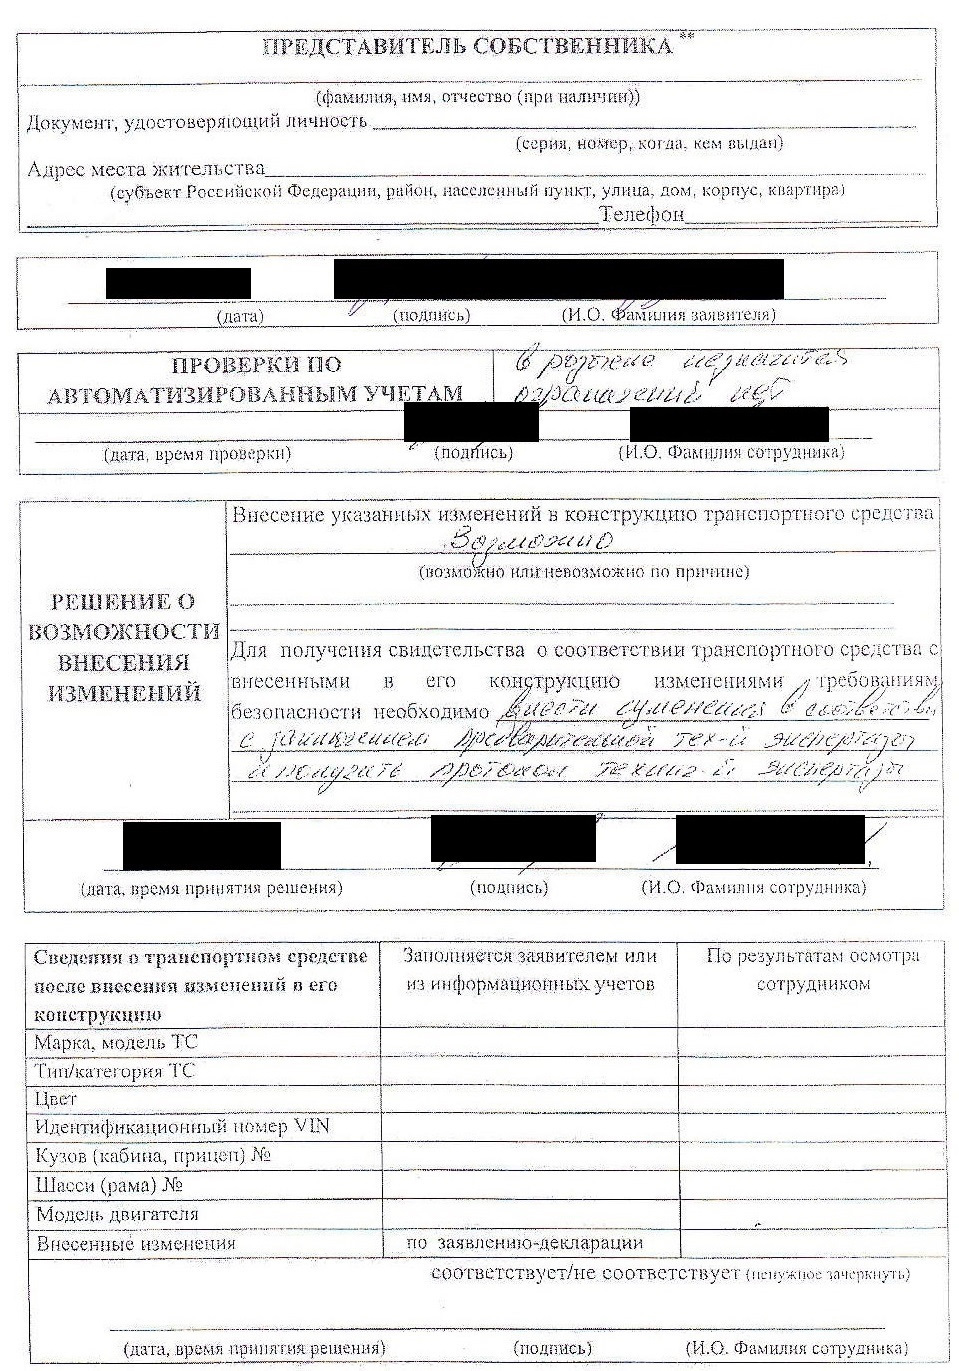 ПРЕДСТАВИТЕЛЬ СОБСТВЕННИКА**
(фамилия, имя, отчество (при наличии))
Документ, удостоверяющий личность
(серия, номер, когда, кем выдан)
Адрес места жительства
(субъект Российской Федерации, район, населенный пункт, улица, дом, корпус, квартира)
Телефон
(дата) (подпись) (И.О. Фамилия заявителя)
ПРОВЕРКИ ПО
АВТОМАТИЗИРОВАННЫМ УЧЕТАМ
в розыске не значится
ограничений нет
(дата, время проверки) (подпись) (И.О. Фамилия сотрудника)
РЕШЕНИЕ О
ВОЗМОЖНОСТИ
ВНЕСЕНИЯ
ИЗМЕНЕНИЙ
Внесение указанных изменений в конструкцию транспортного средства
Возможно
(возможно или невозможно по причине)
Для получения свидетельства о соответствии транспортного средства с
внесенными в его конструкцию изменениями требованиям
безопасности необходимо внести изменения в соответствии
с заключением предварительной тех-й экспертизы
и получить протокол технич-й экспертизы
(дата, время принятия решения) (подпись) (И.О. Фамилия сотрудника)
Сведения о транспортном средстве
после внесения изменений в его
конструкцию
Заполняется заявителем или
из информационных учетов
По результатам осмотра
сотрудником
Марка, модель ТС
Тип/категория ТС
Цвет
Идентификационный номер VIN
Кузов (кабина, прицеп) №
Шасси (рама) №
Модель двигателя
Внесенные изменения по заявлению-декларации
соответствует/не соответствует (ненужное зачеркнуть)
(дата, время принятия решения) (подпись) (И.О. Фамилия сотрудника)